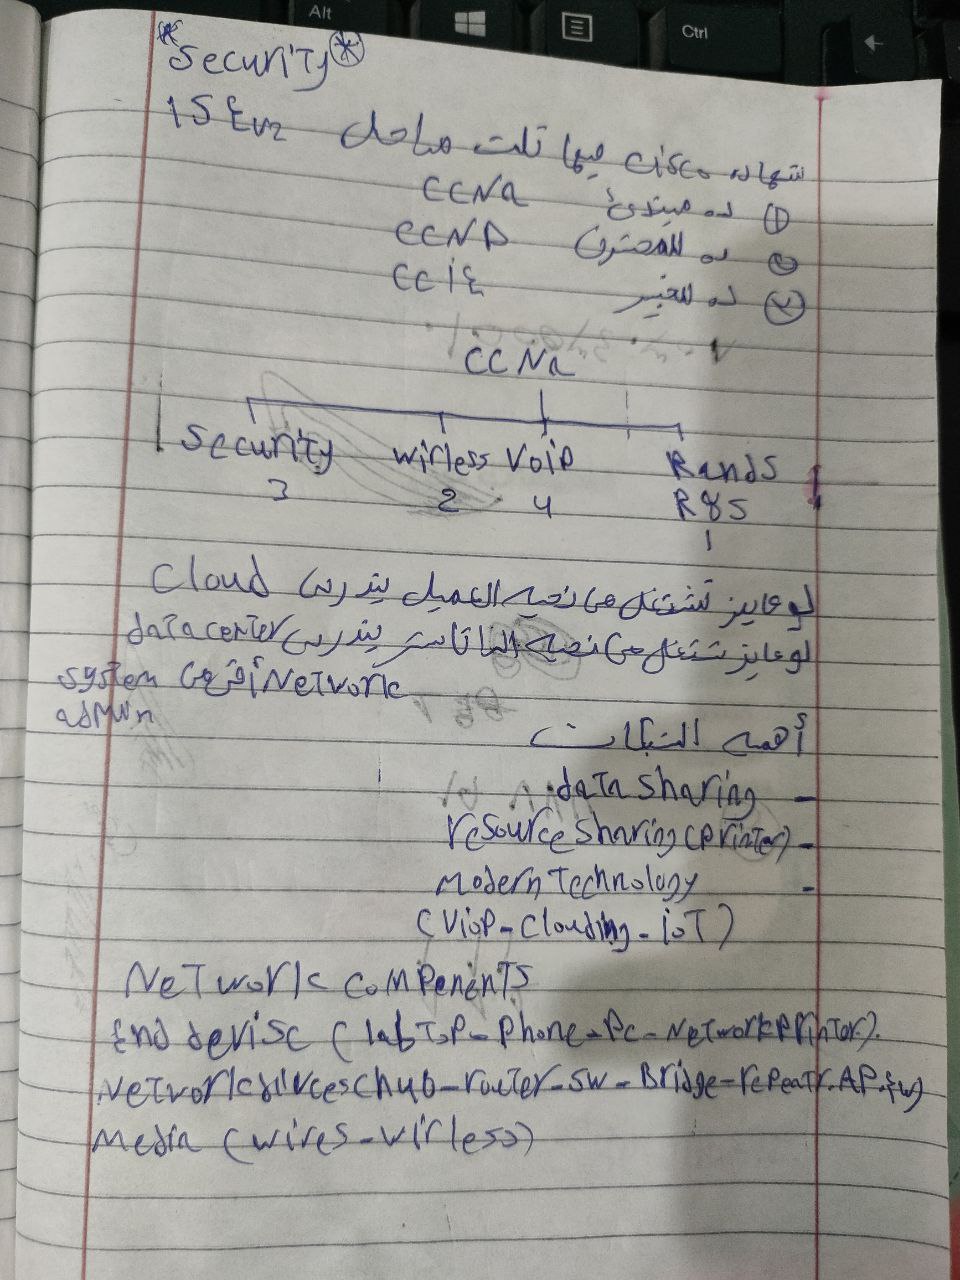 Alt
Ctrl
*Security*
شهاده cisco فيها تلت مراحل
① ده مبتدئ CCNA
② ده للمحترف CCNP
③ ده للخبير CCIE
CCNA
Security wirless VoiP RandS
3 2 4 R&S
1
لو عايز تشتغل من نحيه العميل يندرس Cloud
لو عايز تشتغل من نحيه الداتا سنتر يندرس data center
system admin Network
أهميه الشبكات
- data sharing
- resource sharing (printer)
- modern Technology
(VioP - Clouding - ioT)
NeTwork comPenenTs
End devise (labToP - Phone - Pc - NeTwork Printer).
NeTwork divices (hub - router - sw - Bridge - rePeatr. AP. fw)
Media (wires - wirless)